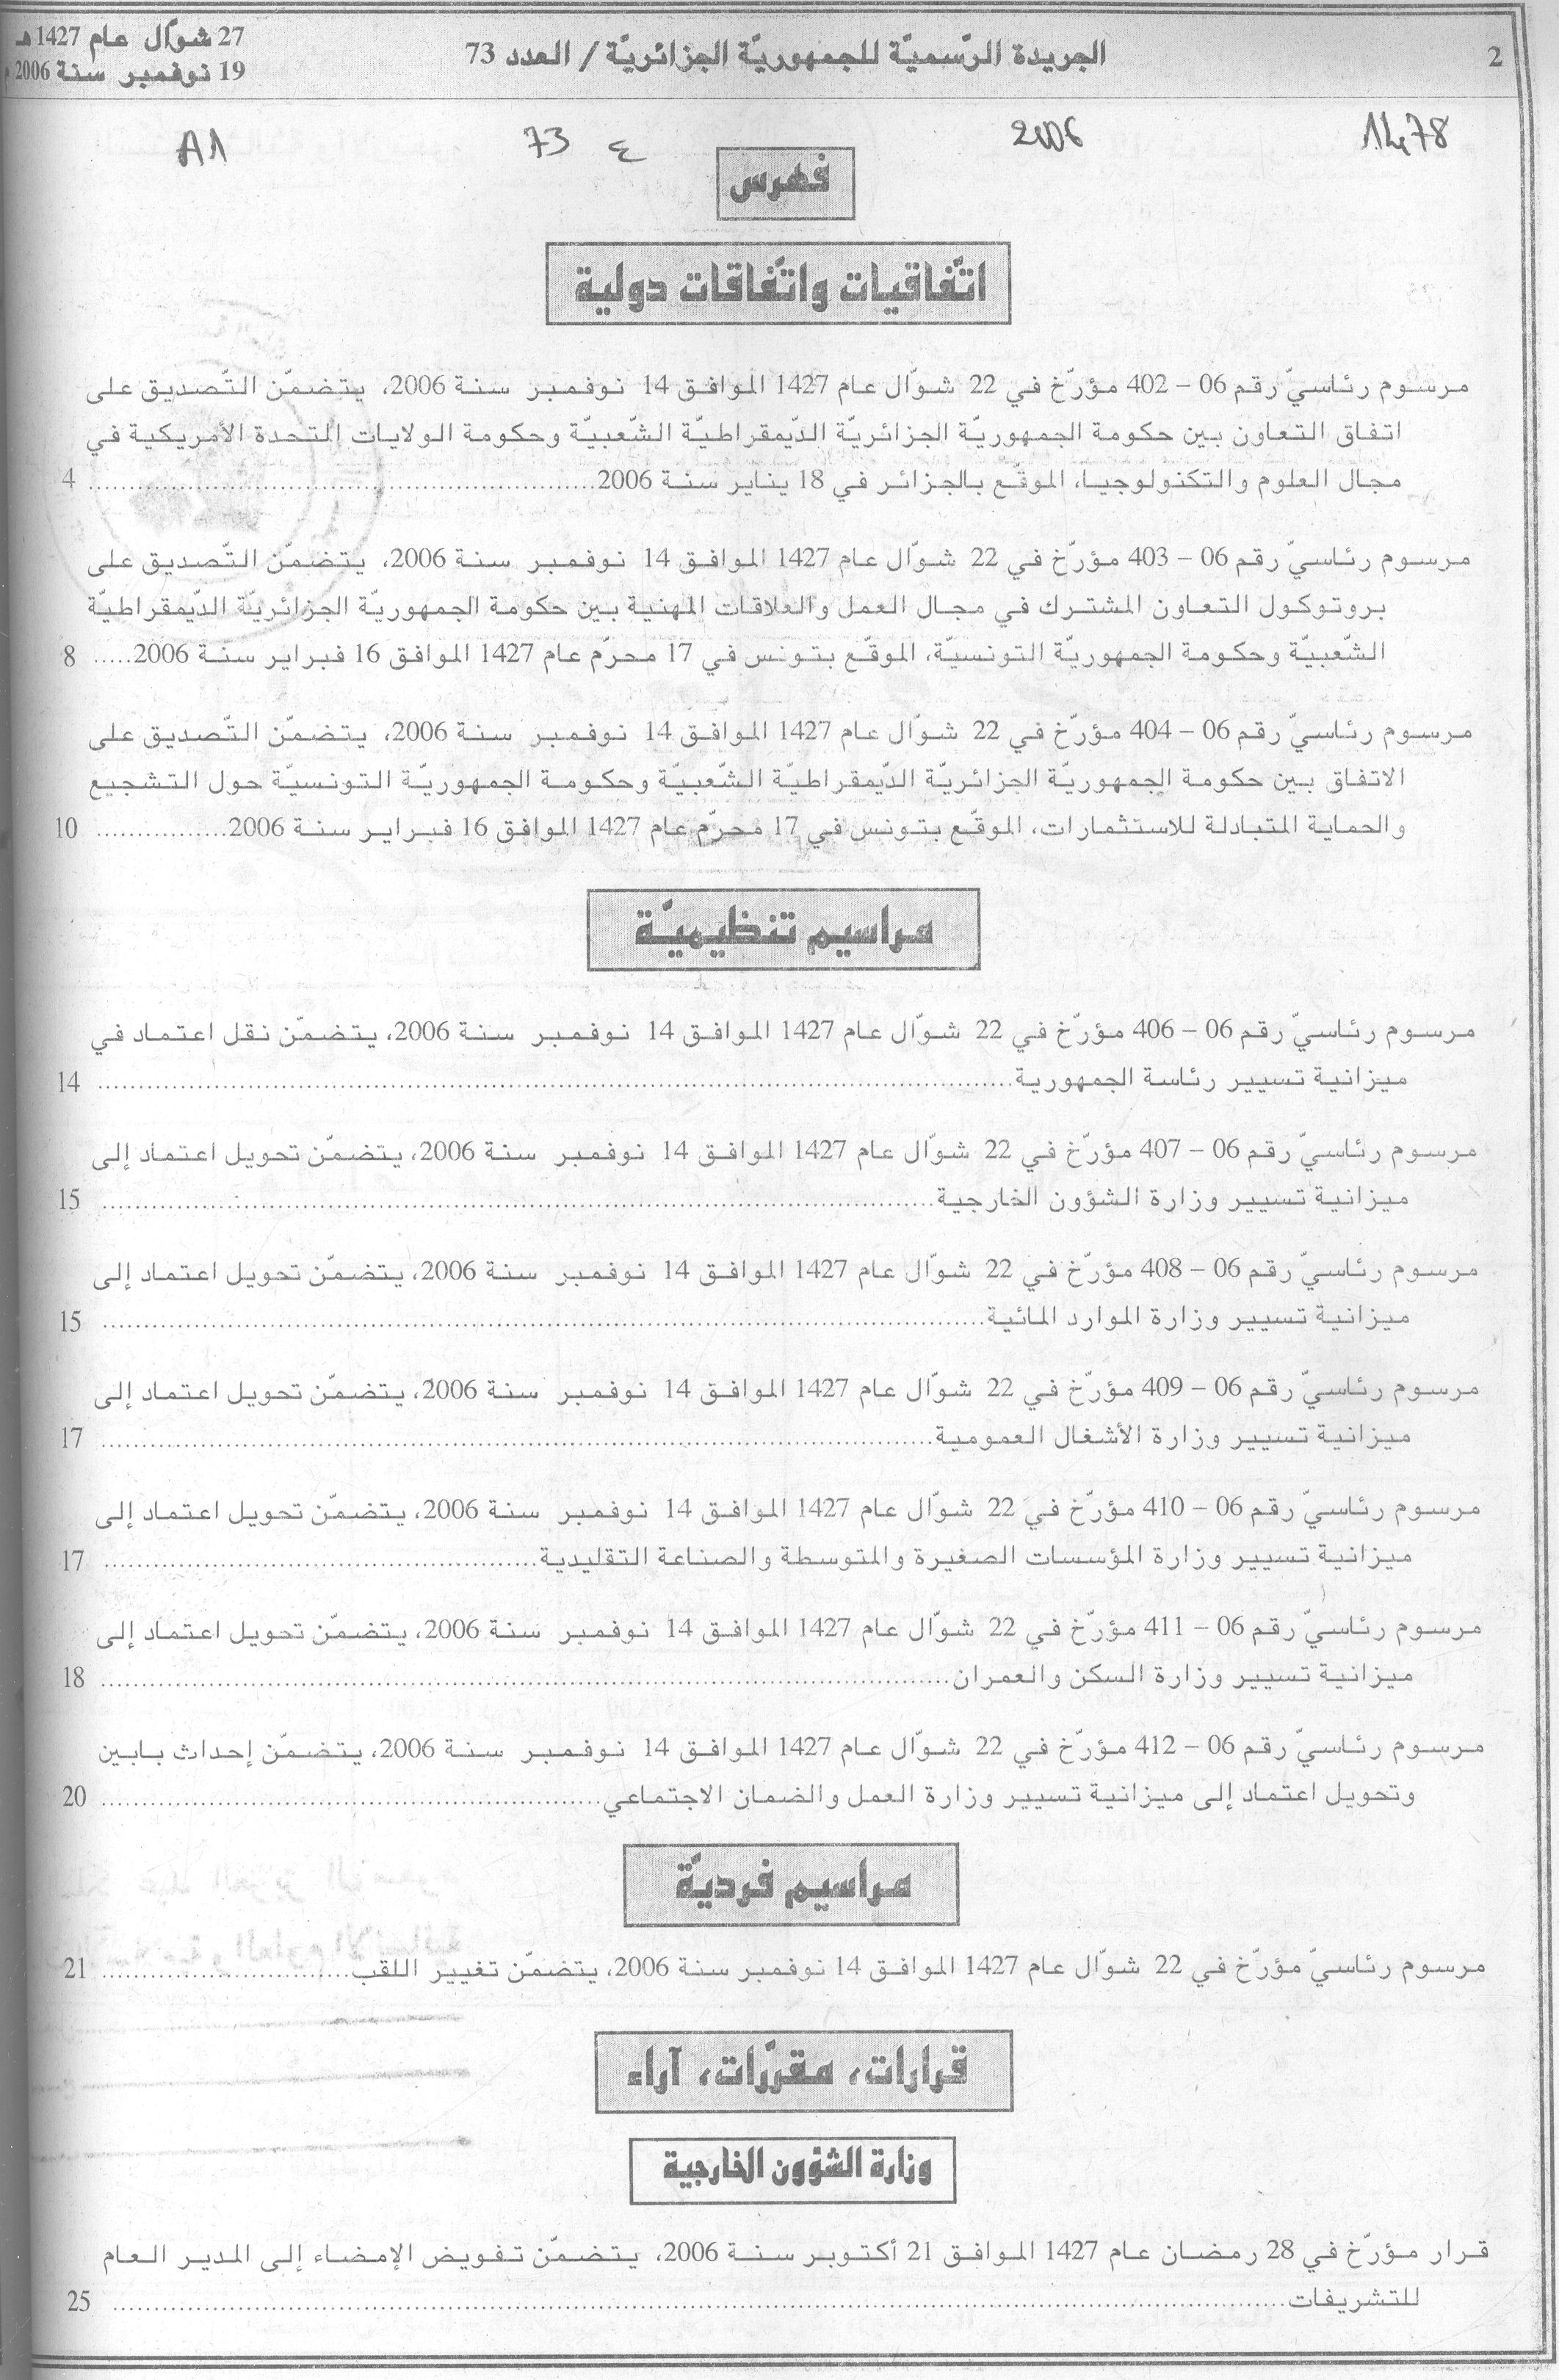 2
الجريدة الرّسميّة للجمهوريّة الجزائريّة / العدد 73
27 شوّال عام 1427 هـ
19 نوفمبر سنة 2006 م
1478
2006
73 ع
A1
فهرس
اتّفاقيات واتّفاقات دولية
مرسوم رئاسيّ رقم 06 – 402 مؤرّخ في 22 شوّال عام 1427 الموافق 14 نوفمبر سنة 2006، يتضمّن التّصديق على
اتفاق التعاون بين حكومة الجمهوريّة الجزائريّة الدّيمقراطيّة الشّعبيّة وحكومة الولايات المتحدة الأمريكية في
مجال العلوم والتكنولوجيا، الموقّع بالجزائر في 18 يناير سنة 2006 ........ 4
مرسوم رئاسيّ رقم 06 – 403 مؤرّخ في 22 شوّال عام 1427 الموافق 14 نوفمبر سنة 2006، يتضمّن التّصديق على
بروتوكول التعاون المشترك في مجال العمل والعلاقات المهنية بين حكومة الجمهوريّة الجزائريّة الدّيمقراطيّة
الشّعبيّة وحكومة الجمهوريّة التونسيّة، الموقّع بتونس في 17 محرّم عام 1427 الموافق 16 فبراير سنة 2006..... 8
مرسوم رئاسيّ رقم 06 – 404 مؤرّخ في 22 شوّال عام 1427 الموافق 14 نوفمبر سنة 2006، يتضمّن التّصديق على
الاتفاق بين حكومة الجمهوريّة الجزائريّة الدّيمقراطيّة الشّعبيّة وحكومة الجمهوريّة التونسيّة حول التشجيع
والحماية المتبادلة للاستثمارات، الموقّع بتونس في 17 محرّم عام 1427 الموافق 16 فبراير سنة 2006 ........ 10
مراسيم تنظيميّة
مرسوم رئاسيّ رقم 06 – 406 مؤرّخ في 22 شوّال عام 1427 الموافق 14 نوفمبر سنة 2006، يتضمّن نقل اعتماد في
ميزانية تسيير رئاسة الجمهورية ........ 14
مرسوم رئاسيّ رقم 06 – 407 مؤرّخ في 22 شوّال عام 1427 الموافق 14 نوفمبر سنة 2006، يتضمّن تحويل اعتماد إلى
ميزانية تسيير وزارة الشؤون الخارجية ........ 15
مرسوم رئاسيّ رقم 06 – 408 مؤرّخ في 22 شوّال عام 1427 الموافق 14 نوفمبر سنة 2006، يتضمّن تحويل اعتماد إلى
ميزانية تسيير وزارة الموارد المائية ........ 15
مرسوم رئاسيّ رقم 06 – 409 مؤرّخ في 22 شوّال عام 1427 الموافق 14 نوفمبر سنة 2006، يتضمّن تحويل اعتماد إلى
ميزانية تسيير وزارة الأشغال العمومية ........ 17
مرسوم رئاسيّ رقم 06 – 410 مؤرّخ في 22 شوّال عام 1427 الموافق 14 نوفمبر سنة 2006، يتضمّن تحويل اعتماد إلى
ميزانية تسيير وزارة المؤسسات الصغيرة والمتوسطة والصناعة التقليدية ........ 17
مرسوم رئاسيّ رقم 06 – 411 مؤرّخ في 22 شوّال عام 1427 الموافق 14 نوفمبر سنة 2006، يتضمّن تحويل اعتماد إلى
ميزانية تسيير وزارة السكن والعمران ........ 18
مرسوم رئاسيّ رقم 06 – 412 مؤرّخ في 22 شوّال عام 1427 الموافق 14 نوفمبر سنة 2006، يتضمّن إحداث بابين
وتحويل اعتماد إلى ميزانية تسيير وزارة العمل والضمان الاجتماعي ........ 20
مراسيم فرديّة
مرسوم رئاسيّ مؤرّخ في 22 شوّال عام 1427 الموافق 14 نوفمبر سنة 2006، يتضمّن تغيير اللقب ........ 21
قرارات، مقرّرات، آراء
وزارة الشؤون الخارجية
قرار مؤرّخ في 28 رمضان عام 1427 الموافق 21 أكتوبر سنة 2006، يتضمّن تفويض الإمضاء إلى المدير العام
للتشريفات ........ 25